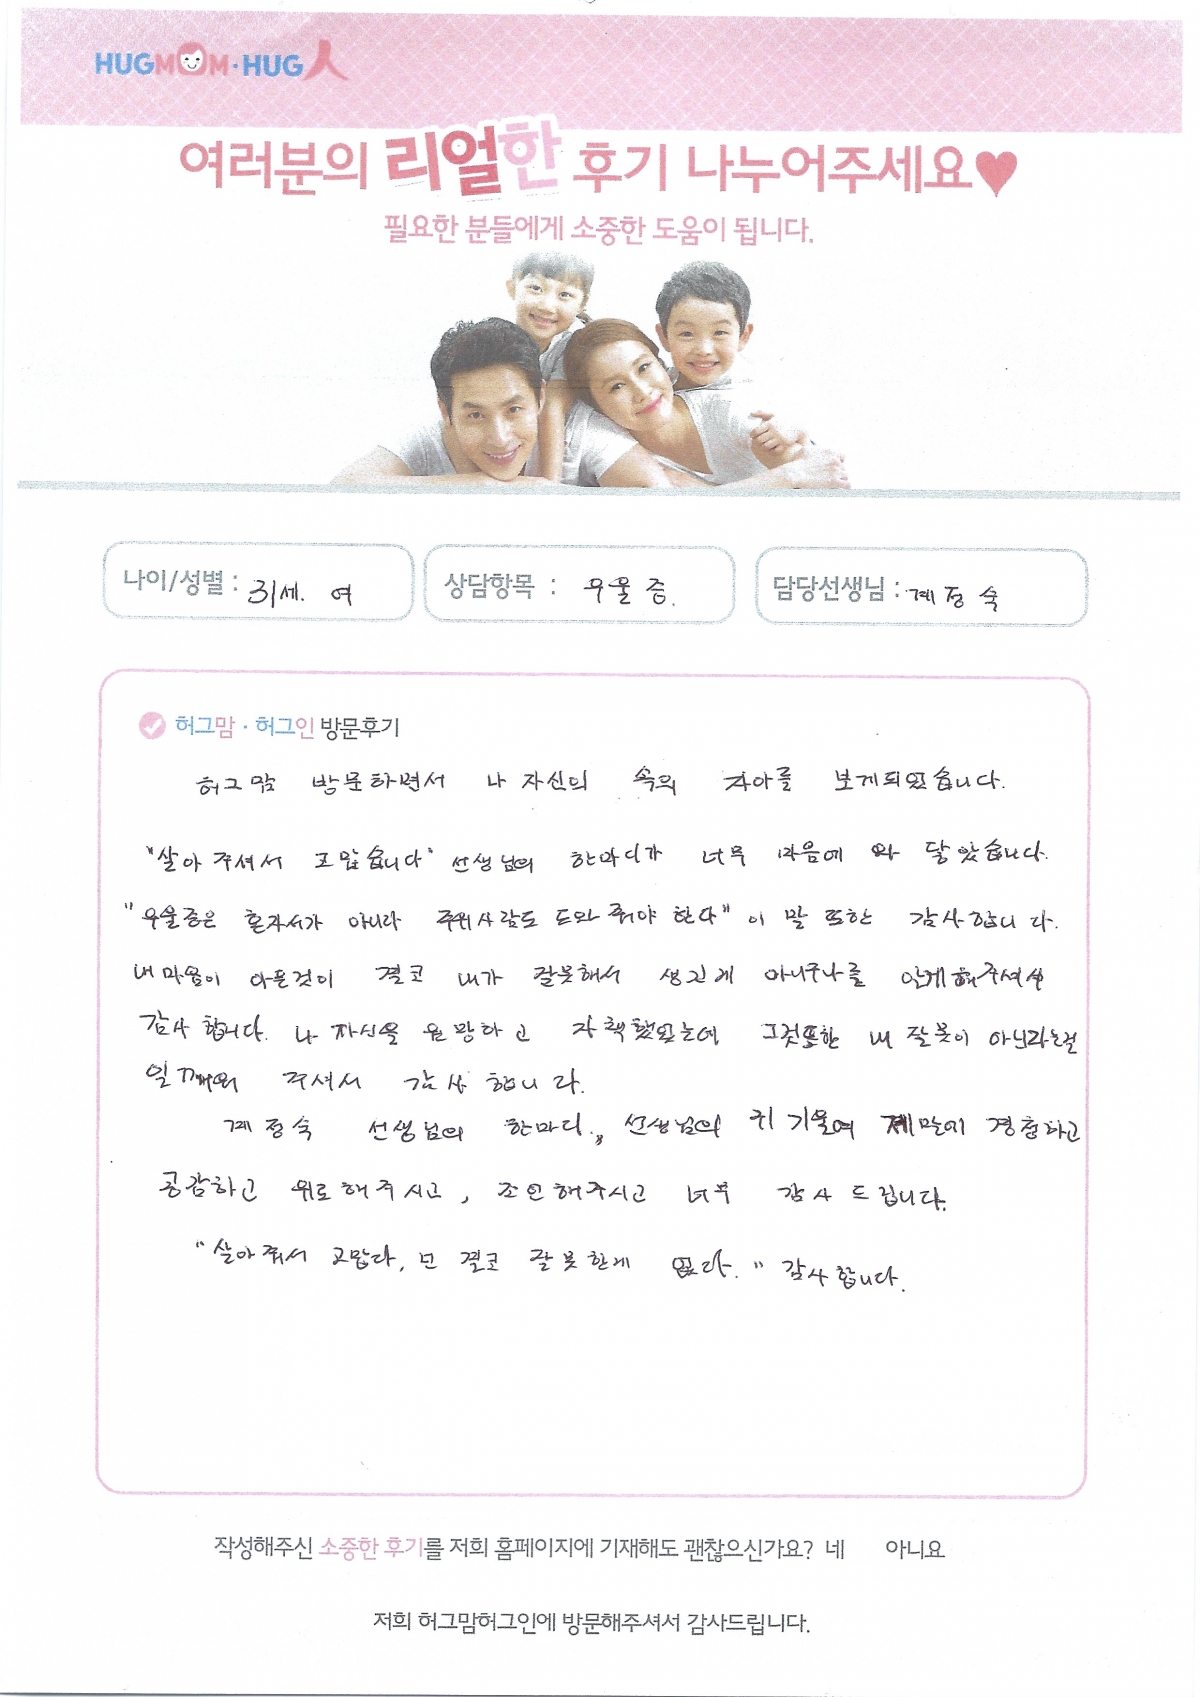 HUGMOM·HUG人
여러분의 리얼한 후기 나누어주세요♥
필요한 분들에게 소중한 도움이 됩니다.
나이/성별 : 31세. 여
상담항목 : 우울증.
담당선생님 : 계정숙
허그맘·허그인 방문후기
허그맘 방문하면서 나 자신의 속의 자아를 보게되었습니다.
"살아 주셔서 고맙습니다" 선생님의 한마디가 너무 마음에 와 닿았습니다.
"우울증은 혼자서가 아니라 주위사람도 도와 줘야 한다" 이 말 또한 감사합니다.
내 마음이 아픈것이 결코 내가 잘못해서 생긴게 아니구나를 알게해주셔서
감사합니다. 나 자신을 원망하고 자책했었는데 그것또한 내 잘못이 아닌라는걸
일깨워 주셔서 감사합니다.
계정숙 선생님의 한마디, 선생님의 귀 기울여 제말에 경청하고
공감하고 위로해주시고, 조언해주시고 너무 감사드립니다.
"살아줘서 고맙다, 넌 결코 잘못한게 없다." 감사합니다.
작성해주신 소중한 후기를 저희 홈페이지에 기재해도 괜찮으신가요? 네 아니요
저희 허그맘허그인에 방문해주셔서 감사드립니다.